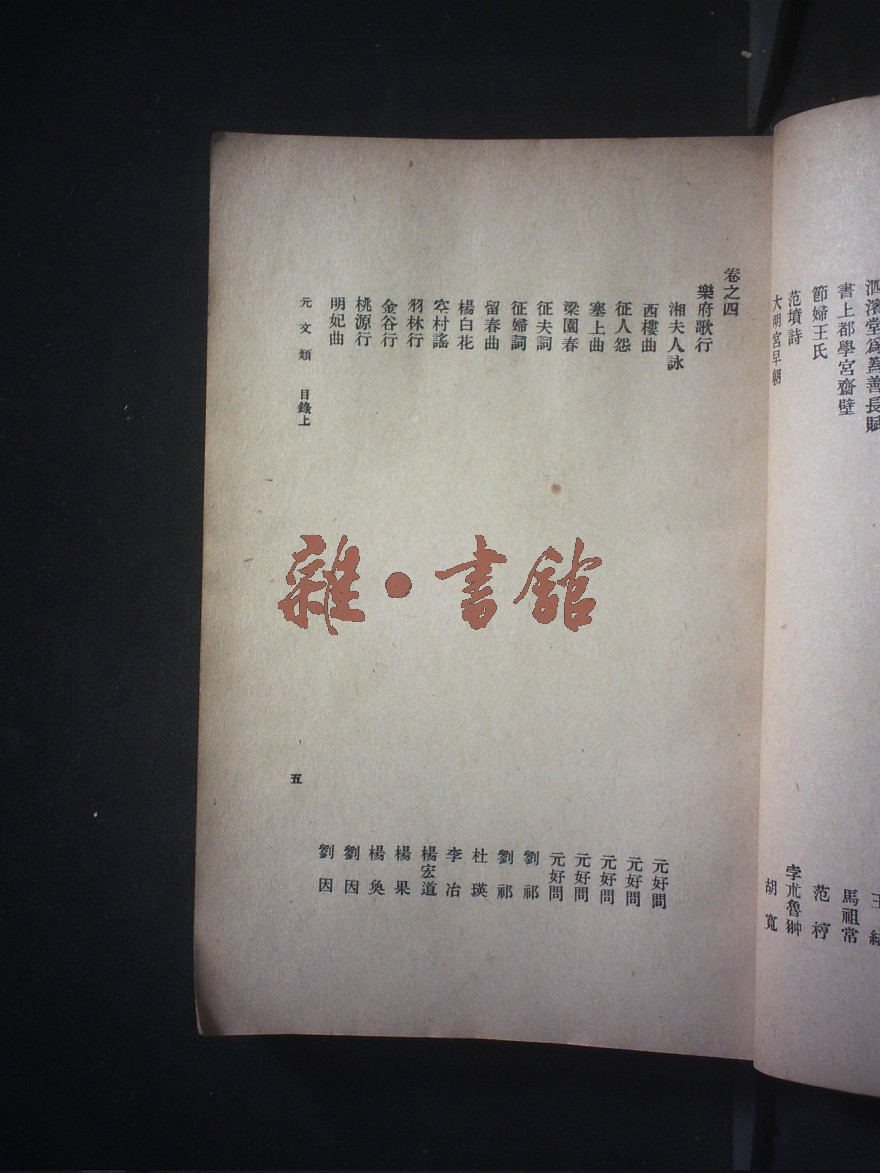 泗濱堂爲蓋善長賦
書上都學宮齋壁 馬祖常
節婦王氏 范梈
范墳詩 孛朮魯翀
大明宮早朝 胡寬
卷之四
樂府歌行
湘夫人詠 元好問
西樓曲 元好問
征人怨 元好問
塞上曲 元好問
梁園春 元好問
征夫詞 劉祁
征婦詞 劉祁
留春曲 杜瑛
楊白花 李冶
空村謠 楊宏道
羽林行 楊果
金谷行 楊奐
桃源行 劉因
明妃曲 劉因
元文類 目錄上 五
雜·書館